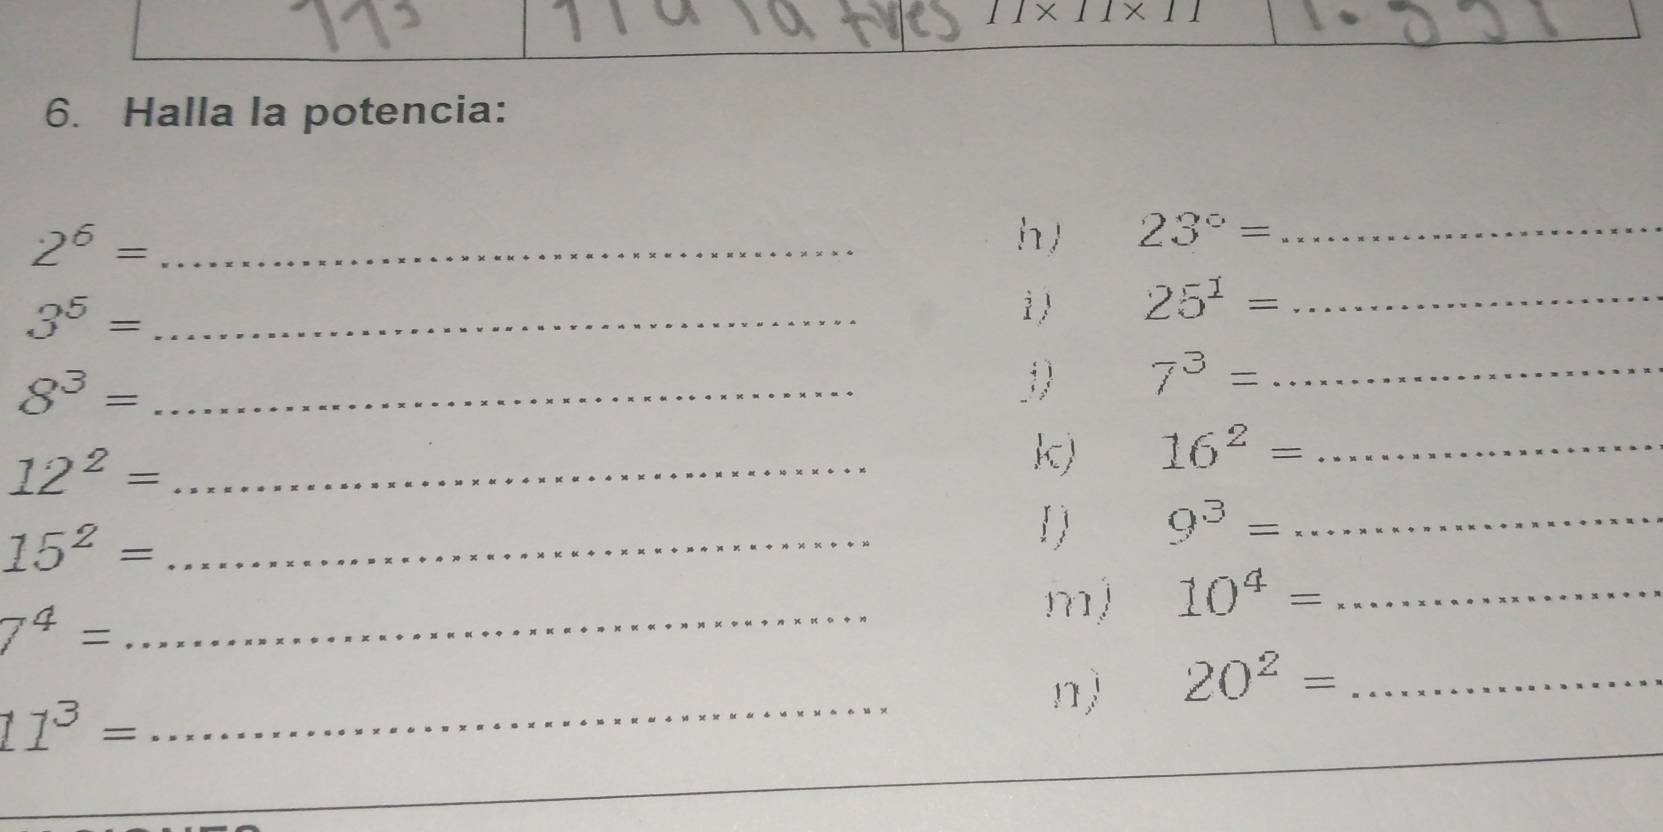 11³ 11 a la tres 11×11×11 1.331
6. Halla la potencia:
2⁶ = ........................................
3⁵ = ........................................
8³ = ........................................
12² = ........................................
15² = ........................................
7⁴ = ........................................
11³ = ........................................
h) 23⁰ = ........................
i) 25¹ = ........................
j) 7³ = ........................
k) 16² = ........................
l) 9³ = ........................
m) 10⁴ = ........................
n) 20² = ........................